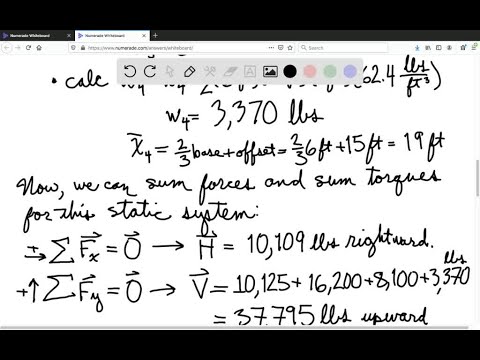 Numerade Whiteboard
Numerade Whiteboard
https://www.numerade.com/answers/whiteboard/
• calc 62.4 lbs/ft³)
w₄ = 3,370 lbs
x̄₄ = 2/3 base + offset = 2/3 6 ft + 15 ft = 19 ft
Now, we can sum forces and sum torques
for this static system:
+→ ∑F⃗ₓ = 0⃗ → H⃗ = 10,109 lbs rightward.
+↑ ∑F⃗y = 0⃗ → V⃗ = 10,125 + 16,200 + 8,100 + 3,370 lbs
= 37,795 lbs upward